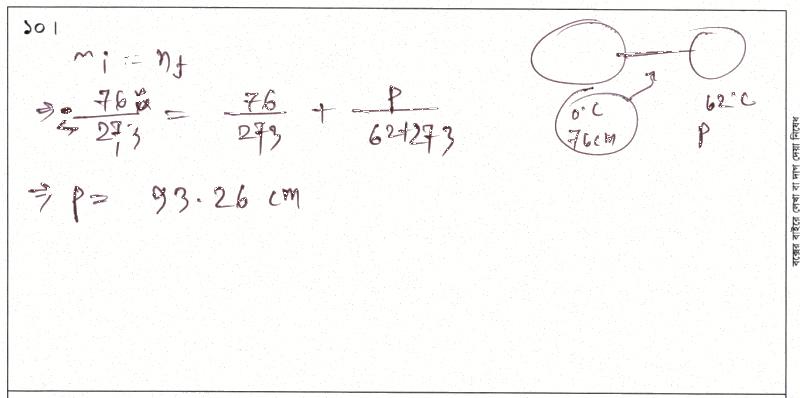 ১০।
n i = n f
⇒ 76 / 273 = 76 / 273 + P / 62+273
⇒ P = 93.26 cm
0°C
76cm
62°C
P
বক্সের বাইরে লেখা বা দাগ দেয়া নিষেধ